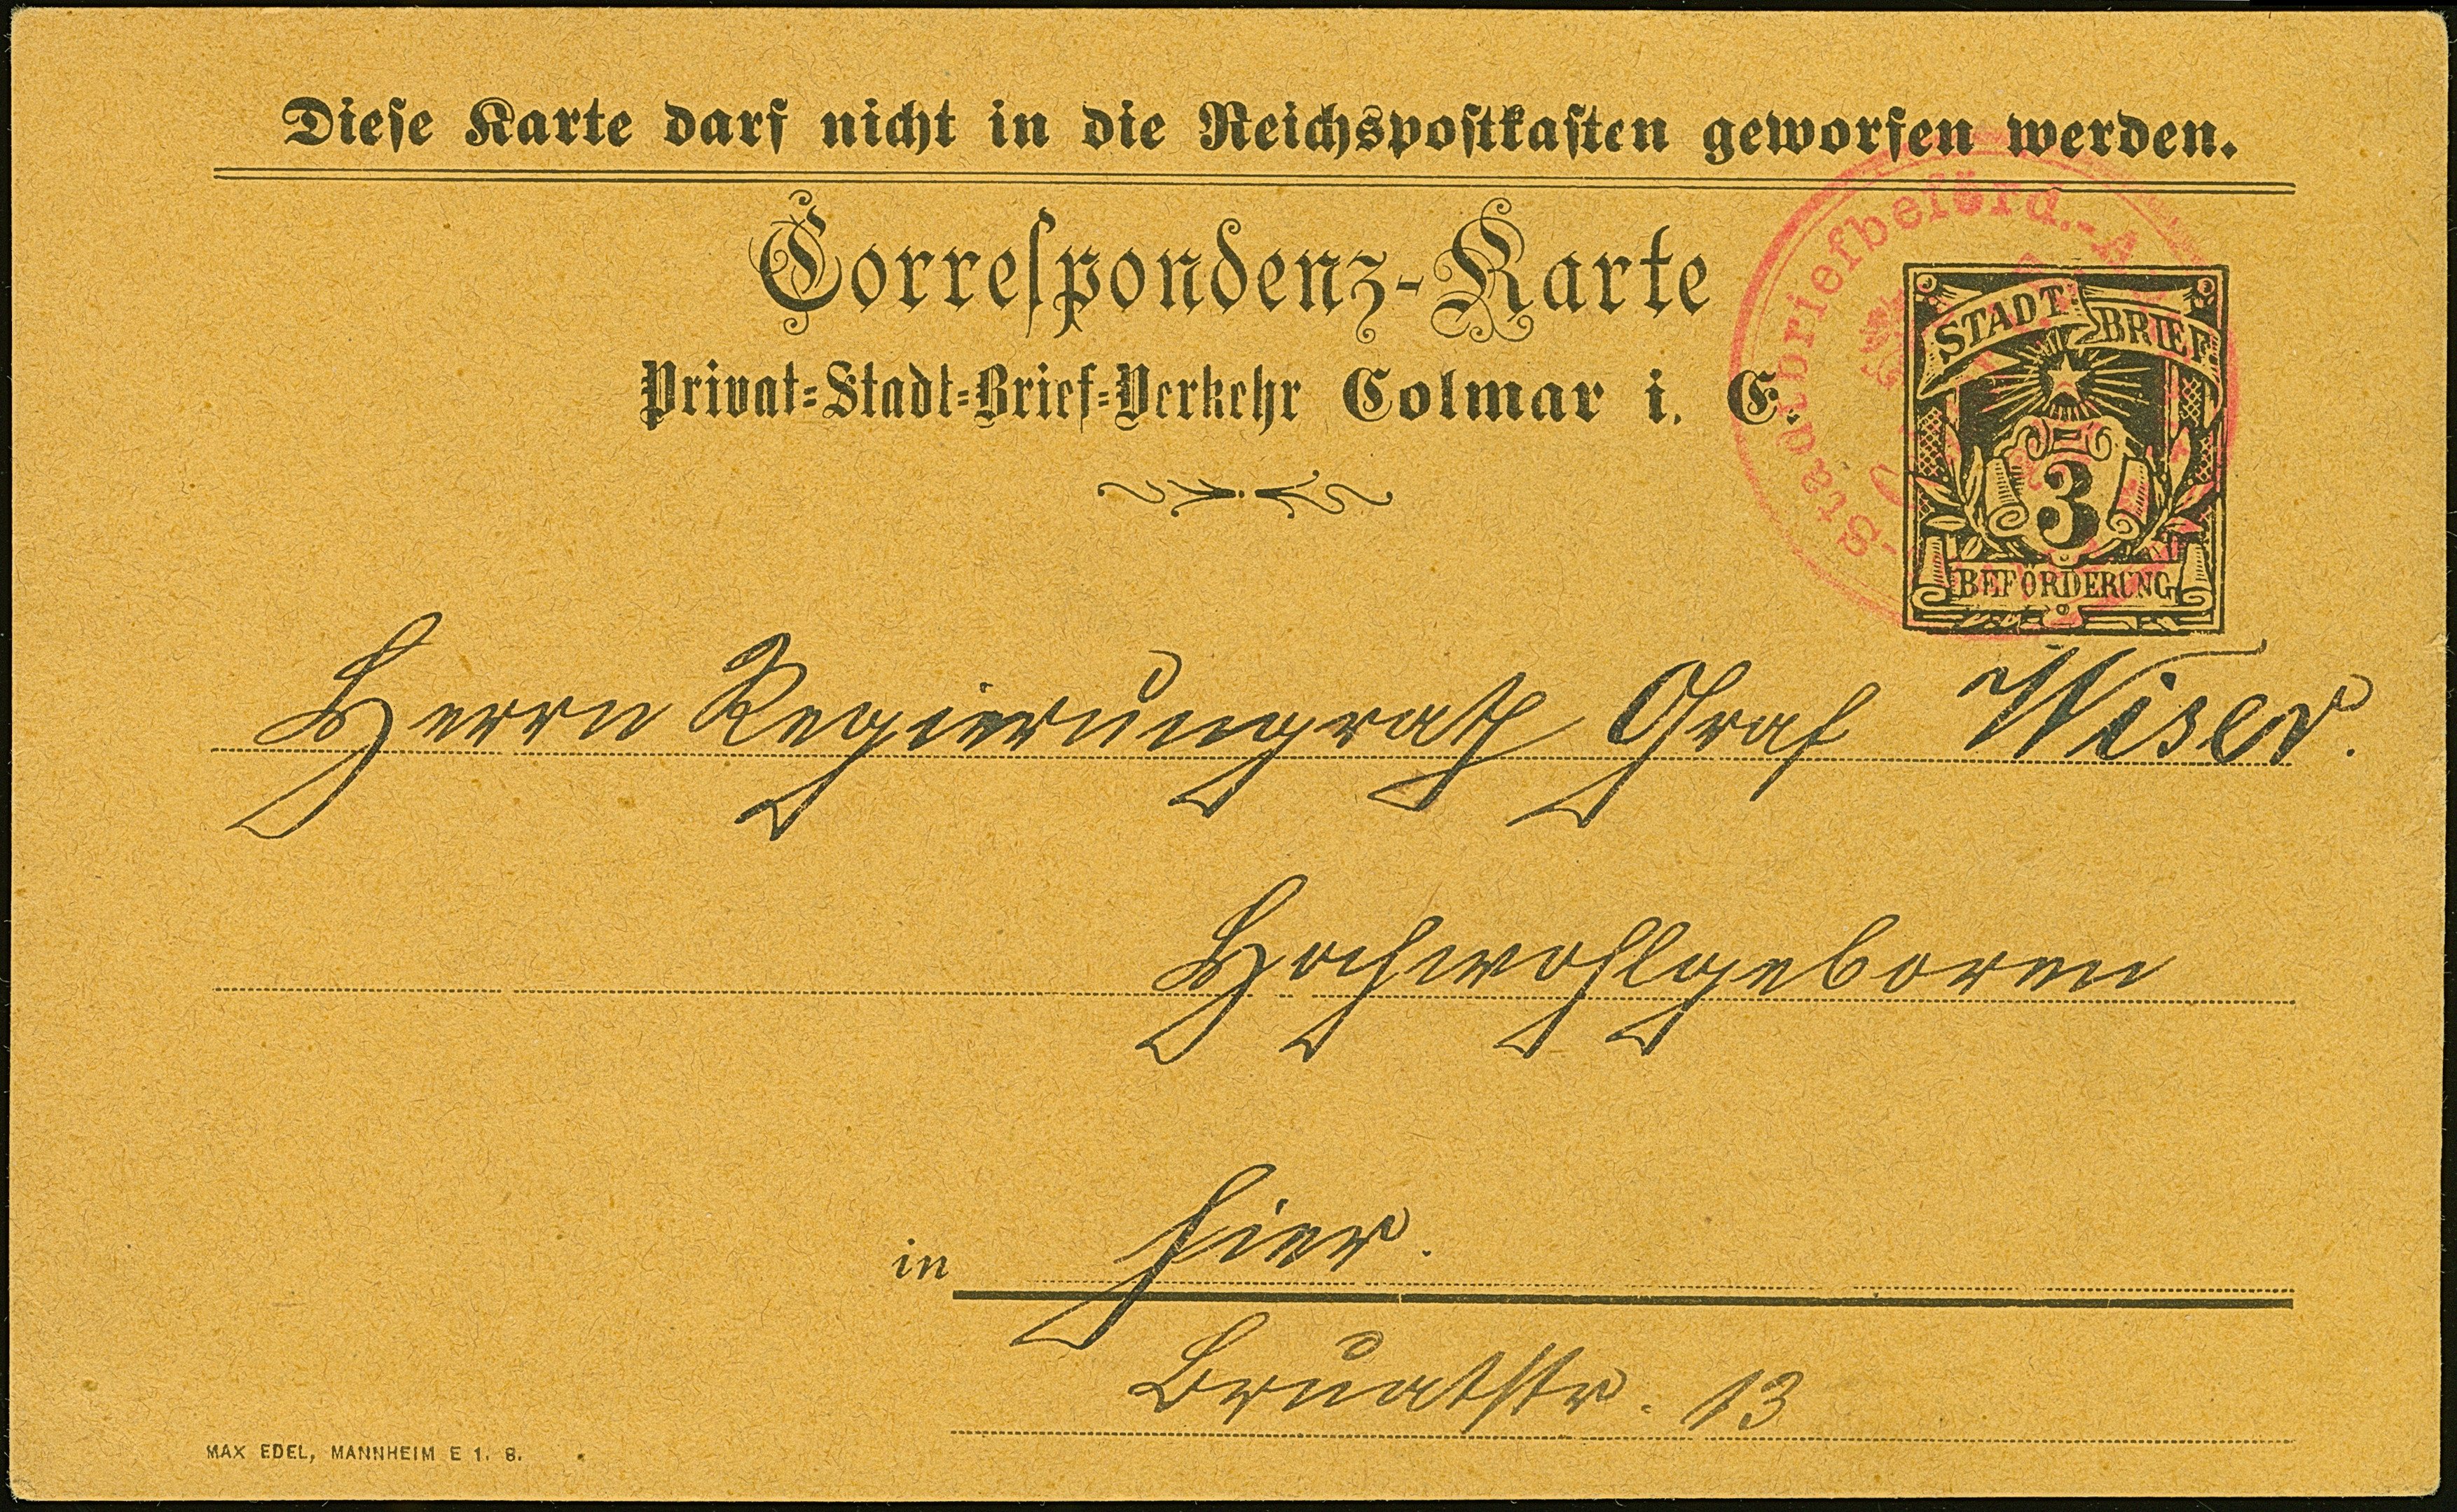 Diese Karte darf nicht in die Reichspostkasten geworfen werden.
Correspondenz-Karte
Privat-Stadt-Brief-Verkehr Colmar i. E.
Stadtbriefbeförd.-A
STADT-BRIEF
3
BEFÖRDERUNG
Herrn Regierungrath Graf Wiser.
Hochwohlgeboren
in hier.
Bruatstr. 13
MAX EDEL, MANNHEIM E 1. 8.